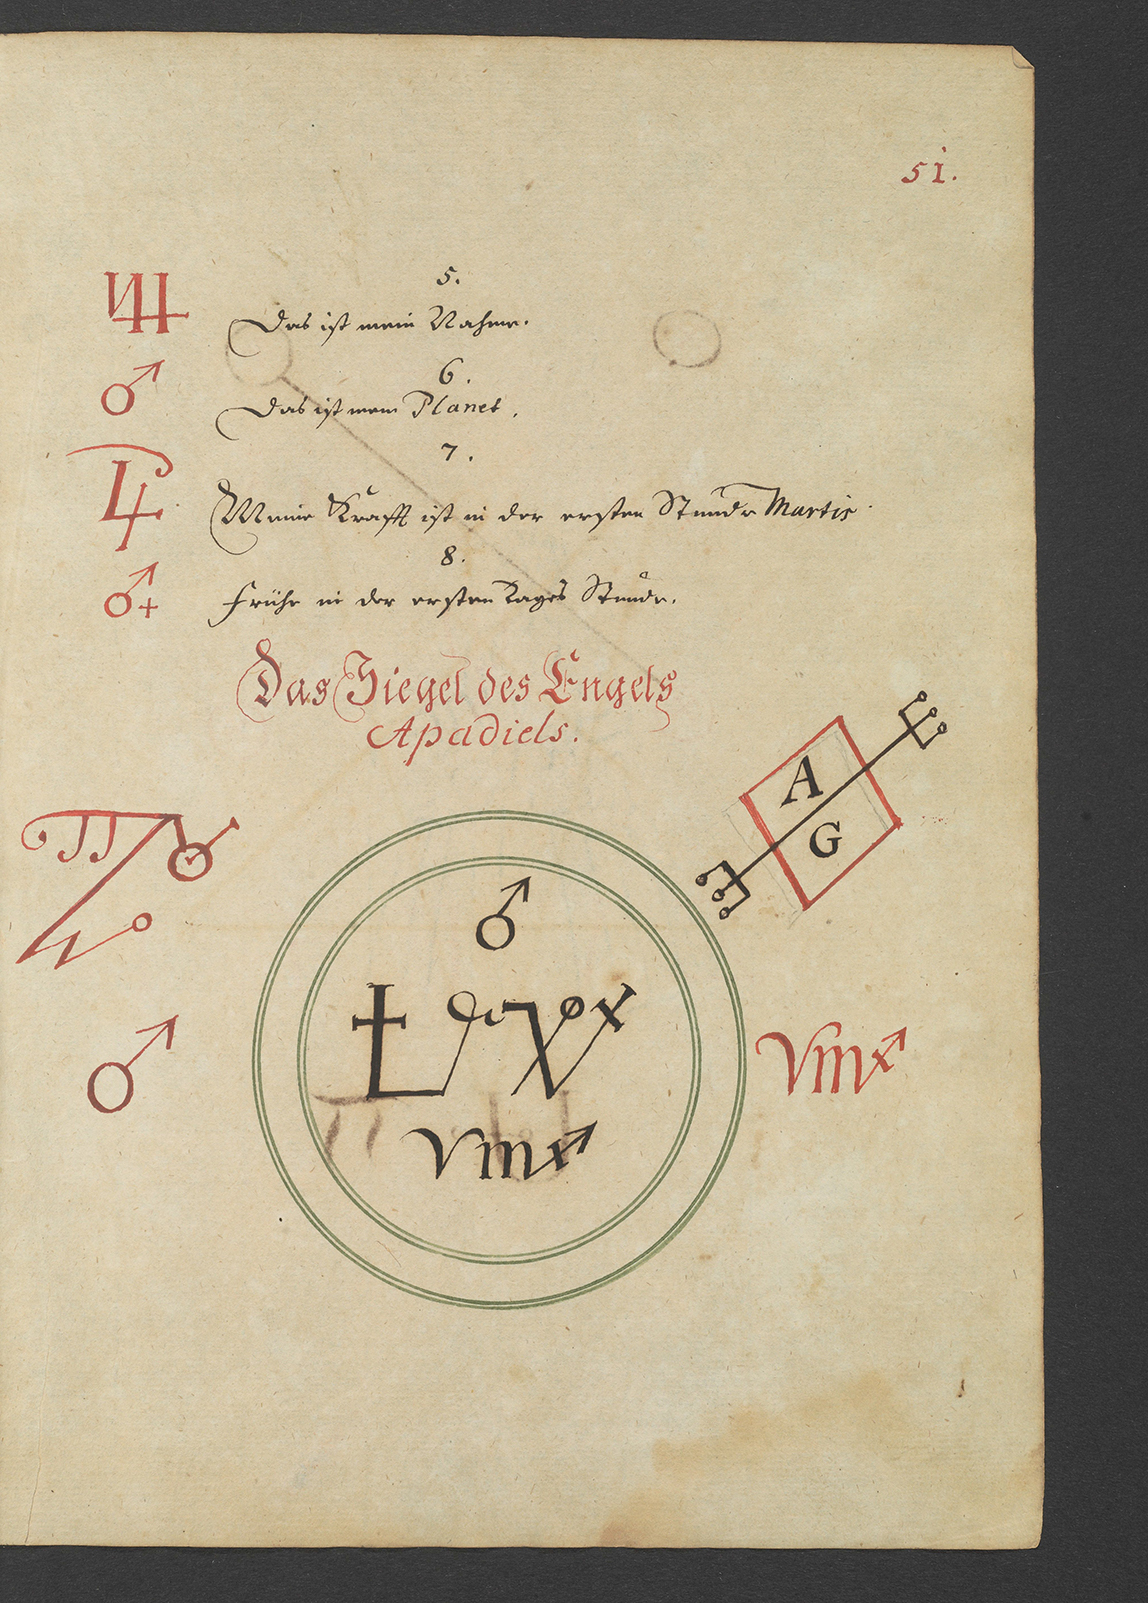 51.
5.
Das ist mein Nahme.
6.
Das ist mein Planet.
7.
Meine Krafft ist in der ersten Stunde Martis.
8.
Frühe in der ersten Tages Stunde.
Das Siegel des Engels
Apadiels.
A
G